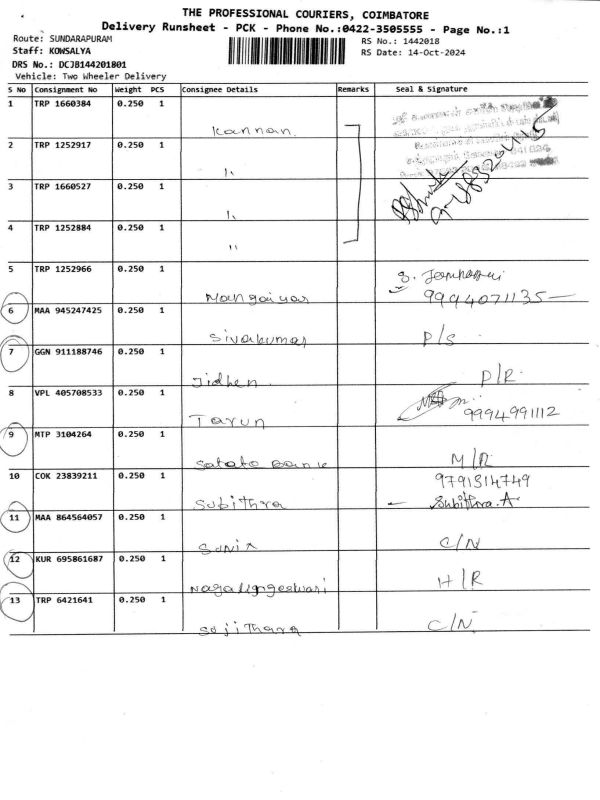 THE PROFESSIONAL COURIERS, COIMBATORE
Delivery Runsheet - PCK - Phone No.:0422-3505555 - Page No.:1
Route: SUNDARAPURAM RS No.: 1442018
Staff: KOWSALYA RS Date: 14-Oct-2024
DRS No.: DCJB144201801
Vehicle: Two Wheeler Delivery
S No Consignment No Weight PCS Consignee Details Remarks Seal & Signature
1 TRP 1660384 0.250 1
Kannan
2 TRP 1252917 0.250 1
"
3 TRP 1660527 0.250 1
"
9488320415
4 TRP 1252884 0.250 1
"
5 TRP 1252966 0.250 1
Mangaiyar 9994071135
6 MAA 945247425 0.250 1
Sivakumar D/S
7 GGN 911188746 0.250 1
Jidhen D/R
8 VPL 405708533 0.250 1
Tarun 9994991112
9 MTP 3104264 0.250 1
M/R
10 COK 23839211 0.250 1 9791314749
Subithra Subithra.A
11 MAA 864564057 0.250 1
C/N
12 KUR 695861687 0.250 1
H/R
13 TRP 6421641 0.250 1
Sujithara C/N